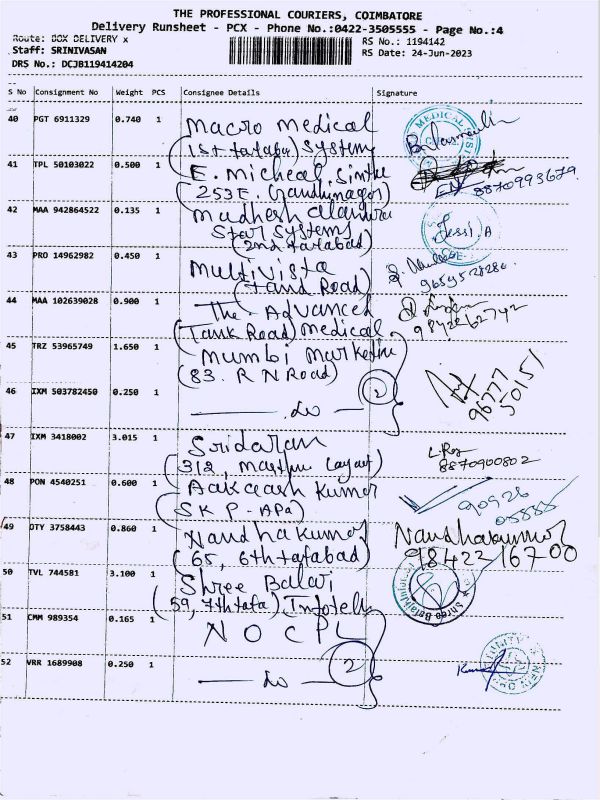 THE PROFESSIONAL COURIERS, COIMBATORE
Delivery Runsheet - PCX - Phone No.:0422-3505555 - Page No.:4
Route: BOX DELIVERY x
RS No.: 1194142
Staff: SRINIVASAN
RS Date: 24-Jun-2023
DRS No.: DCJB119414204
S No Consignment No Weight PCS Consignee Details Signature
40 PGT 6911329 0.740 1 Macro Medical
(1st tatabad) Systems
41 TPL 50103022 0.500 1 E. Micheal
(253 E. Gandhinagar) 8870993679
42 MAA 942864522 0.135 1 Madhesh
Star Systems Jessi.A
(2nd tatabad)
43 PRO 14962982 0.450 1 Multivista
(Tand Road)
44 MAA 102639028 0.900 1 The Advanced
(Tank Road) Medical
45 TRZ 53965749 1.650 1 Mumbi
(83. R N Road)
46 IXM 503782450 0.250 1 2 96777
do 50151
47 IXM 3418002 3.015 1 Sridaran
(312, Layout) 8870900802
48 PON 4540251 0.600 1 Aakaash Kumar
(SKP - APa) 90926
49 OTY 3758443 0.860 1 Nandhakumar
(65, 6th tatabad) 9842216700
50 TVL 744581 3.100 1 Shree Balaji
(59, 7th tata) Infotech
51 CMM 989354 0.165 1 NOCPL
52 VRR 1689908 0.250 1 2
do